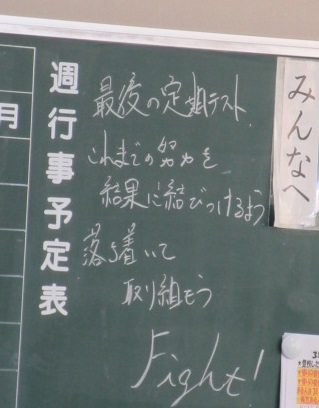 みんなへ
週行事予定表
月
最後の定期テスト
これまでの努力を
結果に結びつけるよう
落ち着いて
取り組もう
Fight!